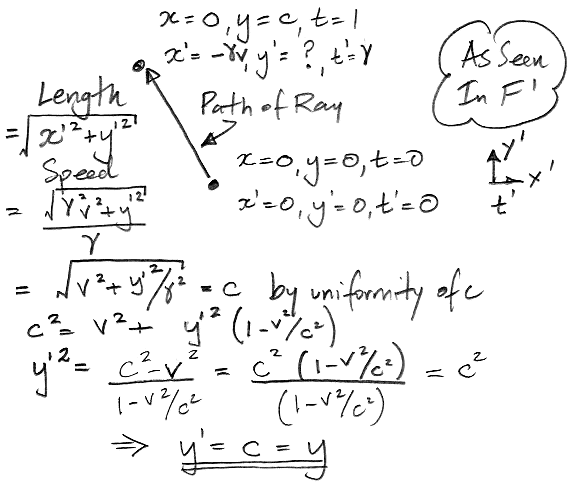 x=0, y=c, t=1
x'=-γv, y'=?, t'=γ
As Seen
In F'
Length
=√(x'²+y'²)
Path of Ray
Speed
=√(γ²v²+y'²)/γ
x=0, y=0, t=0
x'=0, y'=0, t'=0
y'
x'
t'
=√(v²+y'²/γ²) = c by uniformity of c
c²= v²+ y'²(1-v²/c²)
y'²= (c²-v²)/(1-v²/c²) = c²(1-v²/c²)/(1-v²/c²) = c²
⇒ y'= c = y